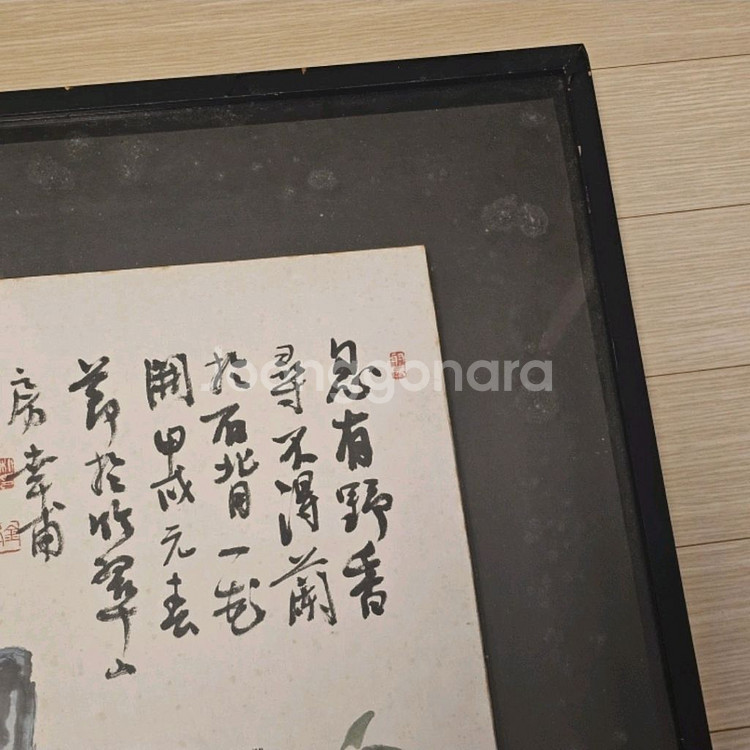 忽有野香
尋不得蘭
於石背一花
開甲戌元春
節於竹翠山
房幸甫
Joonggonara